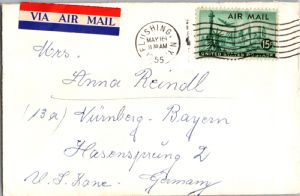 VIA AIR MAIL
FLUSHING, N.Y.
MAY 16
11 30 AM
55
AIR MAIL
15¢
UNITED STATES POSTAGE
Mrs.
Anna Reindl
(13a) Nürnberg - Bayern
Hasensprung 2
U. S. Zone. Germany